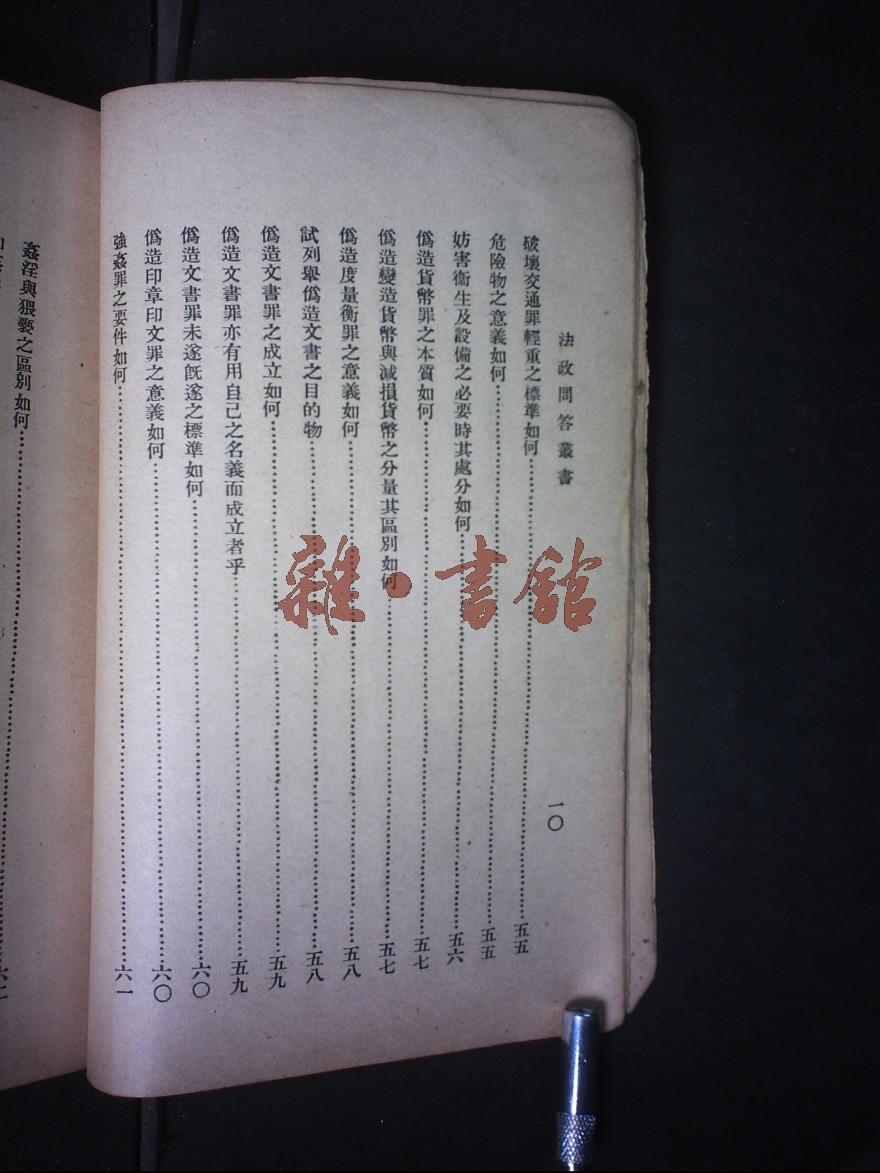 法政問答叢書
一〇
破壞交通罪輕重之標準如何……五五
危險物之意義如何……五五
妨害衞生及設備之必要時其處分如何……五六
僞造貨幣罪之本質如何……五七
僞造變造貨幣與減損貨幣之分量其區別如何……五七
僞造度量衡罪之意義如何……五八
試列舉僞造文書之目的物……五八
僞造文書罪之成立如何……五九
僞造文書罪亦有用自己之名義而成立者乎……五九
僞造文書罪未遂旣遂之標準如何……六〇
僞造印章印文罪之意義如何……六〇
強姦罪之要件如何……六一
姦淫與猥褻之區別如何……六二
雜·書館